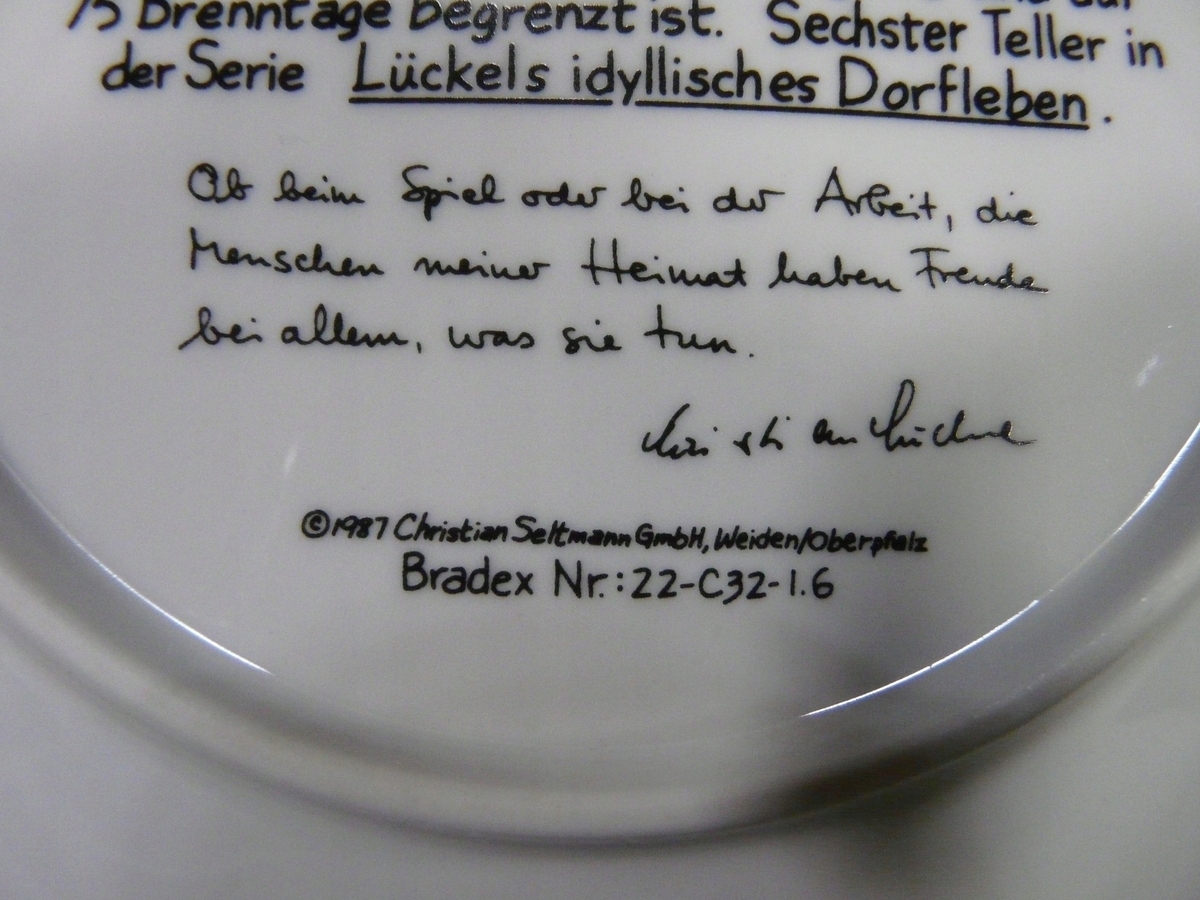 75 Brenntage begrenzt ist. Sechster Teller in
der Serie Lückels idyllisches Dorfleben.
Ob beim Spiel oder bei der Arbeit, die
Menschen meiner Heimat haben Freude
bei allem, was sie tun.
©1987 Christian Seltmann GmbH, Weiden/Oberpfalz
Bradex Nr.: 22-C32-1.6